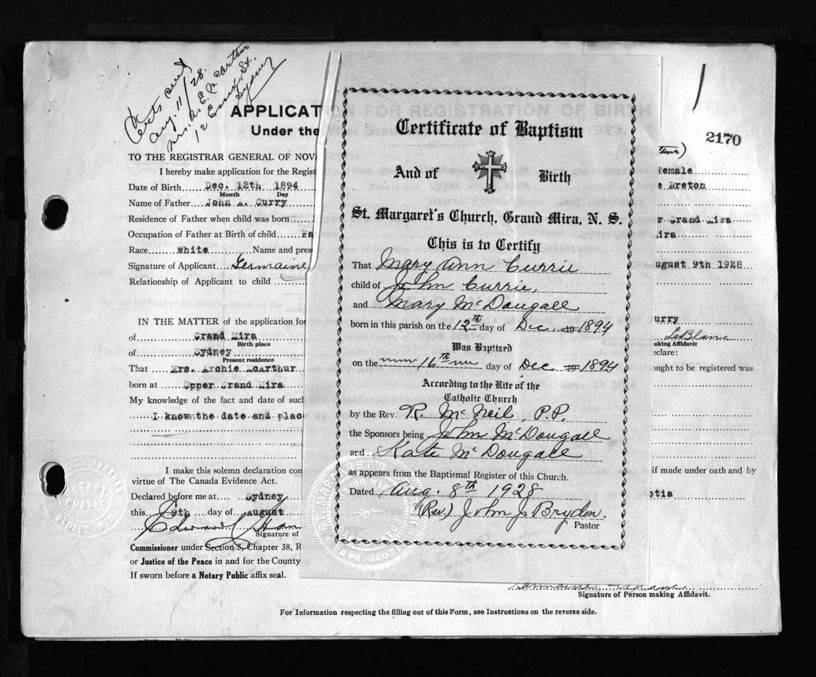 Certs sent
Aug. 11/28.
Mrs. A. E. McArthur
12 St.
Sydney
APPLICAT
Under the
2170
TO THE REGISTRAR GENERAL OF NOV
I hereby make application for the Regist
Date of Birth Dec. 12th 1894
Month Day
Name of Father John A. Curry
Residence of Father when child was born
Occupation of Father at Birth of child
Race white Name and pres
Signature of Applicant Germaine
Relationship of Applicant to child
IN THE MATTER of the application for
of Grand Mira
Birth place
of Sydney
Present residence
That Mrs. Archie McArthur
born at Upper Grand Mira
My knowledge of the fact and date of such
I know the date and place
I make this solemn declaration con
virtue of The Canada Evidence Act.
Declared before me at Sydney
this 9th day of August
Signature of
Commissioner under Section 5, Chapter 38, R
or Justice of the Peace in and for the County
If sworn before a Notary Public affix seal.
Certificate of Baptism
And of Birth
St. Margaret's Church, Grand Mira, N. S.
This is to Certify
That Mary Ann Currie
child of John Currie,
and Mary McDougall
born in this parish on the 12th day of Dec. 1894
Was Baptized
on the 16th day of Dec. 1894
According to the Rite of the
Catholic Church
by the Rev. R. McNeil, P.P.
the Sponsors being John McDougall
and Kate McDougall
as appears from the Baptismal Register of this Church.
Dated Aug. 8th 1928
(Rev.) John J. Bryden.
Pastor
Female
e Breton
r Grand Mira
ira
ugust 9th 1928
urry
LeBlanc
aking Affidavit
eclare:
ought to be registered was
if made under oath and by
otia
Signature of Person making Affidavit.
For Information respecting the filling out of this Form, see Instructions on the reverse side.